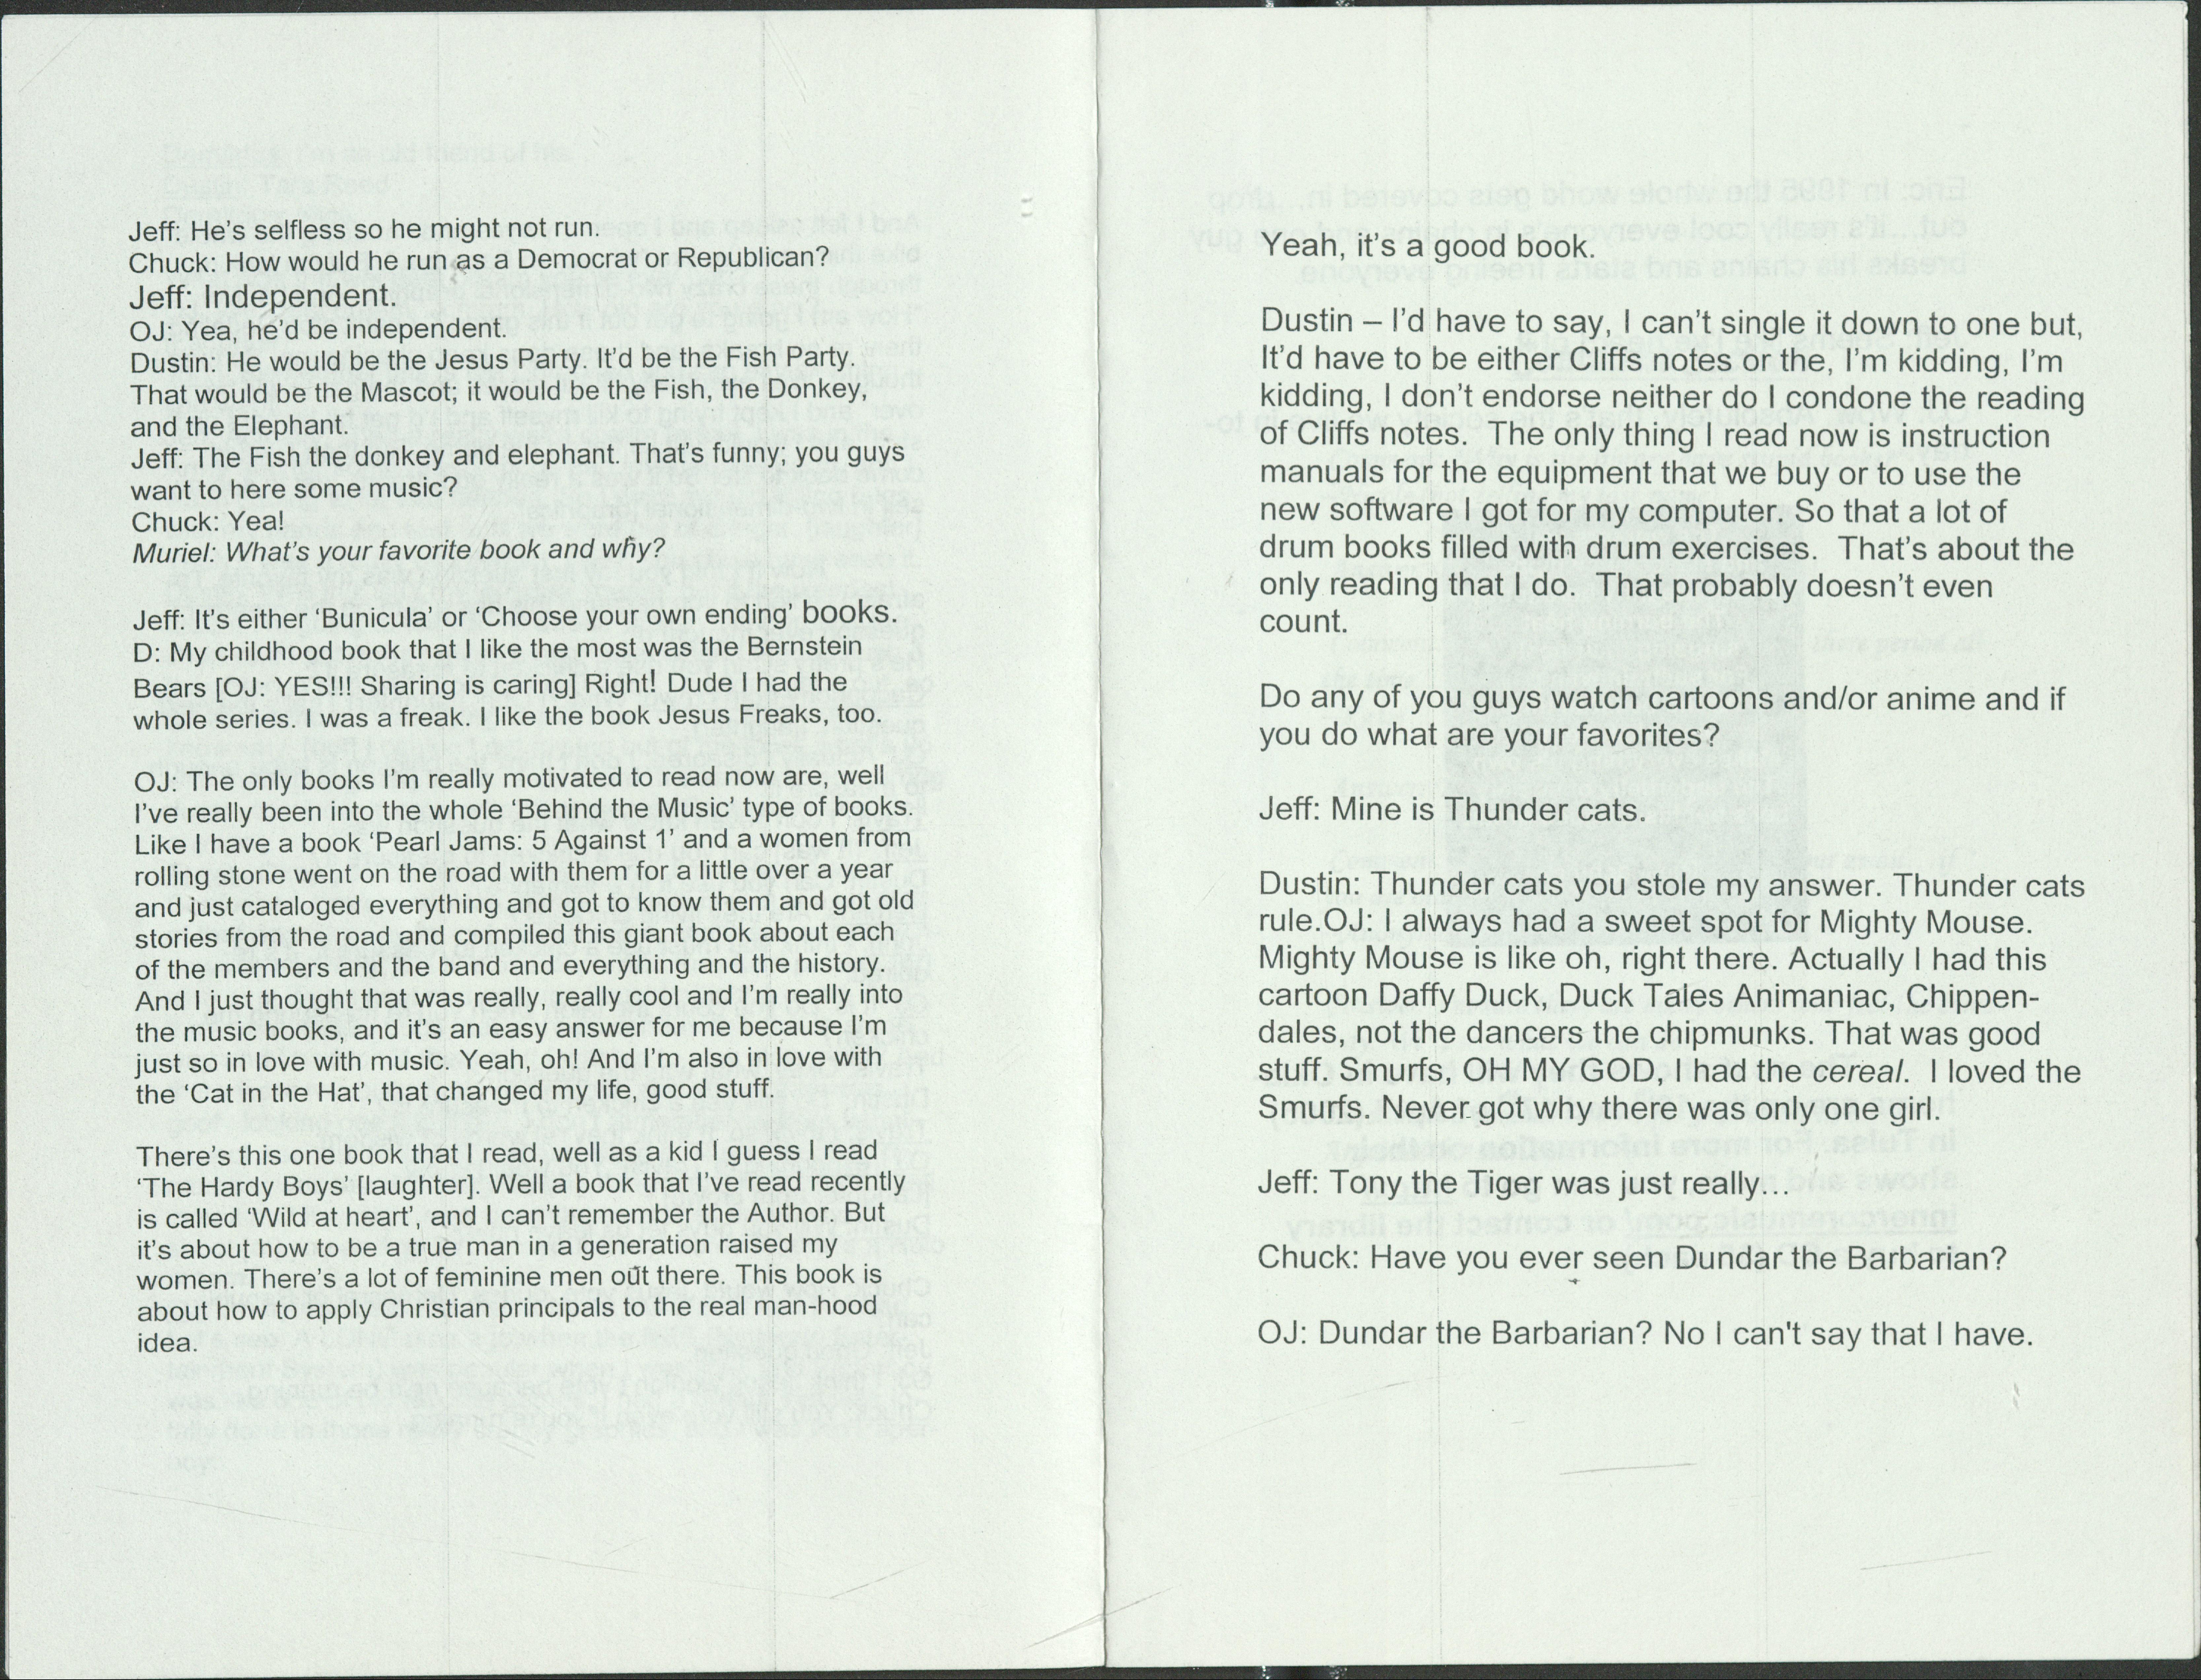 Jeff: He's selfless so he might not run.
Chuck: How would he run as a Democrat or Republican?
Jeff: Independent.
OJ: Yea, he'd be independent.
Dustin: He would be the Jesus Party. It'd be the Fish Party.
That would be the Mascot; it would be the Fish, the Donkey,
and the Elephant.
Jeff: The Fish the donkey and elephant. That's funny; you guys
want to here some music?
Chuck: Yea!
Muriel: What's your favorite book and why?
Jeff: It's either 'Bunicula' or 'Choose your own ending' books.
D: My childhood book that I like the most was the Bernstein
Bears [OJ: YES!!! Sharing is caring] Right! Dude I had the
whole series. I was a freak. I like the book Jesus Freaks, too.
OJ: The only books I'm really motivated to read now are, well
I've really been into the whole 'Behind the Music' type of books.
Like I have a book 'Pearl Jams: 5 Against 1' and a women from
rolling stone went on the road with them for a little over a year
and just cataloged everything and got to know them and got old
stories from the road and compiled this giant book about each
of the members and the band and everything and the history.
And I just thought that was really, really cool and I'm really into
the music books, and it's an easy answer for me because I'm
just so in love with music. Yeah, oh! And I'm also in love with
the 'Cat in the Hat', that changed my life, good stuff.
There's this one book that I read, well as a kid I guess I read
'The Hardy Boys' [laughter]. Well a book that I've read recently
is called 'Wild at heart', and I can't remember the Author. But
it's about how to be a true man in a generation raised my
women. There's a lot of feminine men out there. This book is
about how to apply Christian principals to the real man-hood
idea.
Yeah, it's a good book.
Dustin – I'd have to say, I can't single it down to one but,
It'd have to be either Cliffs notes or the, I'm kidding, I'm
kidding, I don't endorse neither do I condone the reading
of Cliffs notes.  The only thing I read now is instruction
manuals for the equipment that we buy or to use the
new software I got for my computer. So that a lot of
drum books filled with drum exercises.  That's about the
only reading that I do.  That probably doesn't even
count.
Do any of you guys watch cartoons and/or anime and if
you do what are your favorites?
Jeff: Mine is Thunder cats.
Dustin: Thunder cats you stole my answer. Thunder cats
rule.OJ: I always had a sweet spot for Mighty Mouse.
Mighty Mouse is like oh, right there. Actually I had this
cartoon Daffy Duck, Duck Tales Animaniac, Chippen-
dales, not the dancers the chipmunks. That was good
stuff. Smurfs, OH MY GOD, I had the cereal.  I loved the
Smurfs. Never got why there was only one girl.
Jeff: Tony the Tiger was just really…
Chuck: Have you ever seen Dundar the Barbarian?
OJ: Dundar the Barbarian? No I can't say that I have.